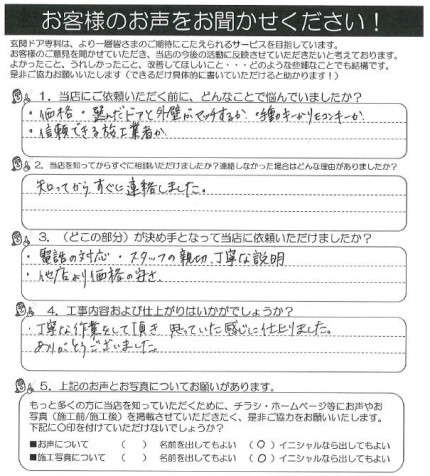 お客様のお声をお聞かせください！
玄関ドア専科は、より一層皆さまのご期待にこたえられるサービスを目指しています。
お客様のご意見を聞かせていただき、当店の今後の活動に反映させていただきたいと考えております。
よかったこと、うれしかったこと、改善してほしいこと・・・どのような些細なことでも結構です。
是非ご協力お願いいたします（できるだけ具体的に書いていただけると助かります！）
1．当店にご依頼いただく前に、どんなことで悩んでいましたか？
・価格・選んだドアと外壁がマッチするか・手動キーかリモコンキーか
・信頼できる施工業者か
2．当店を知ってからすぐに相談いただけましたか？連絡しなかった場合はどんな理由がありましたか？
知ってからすぐに連絡しました。
3．（どこの部分）が決め手となって当店に依頼いただけましたか？
・電話の対応・スタッフの親切、丁寧な説明
・他店より価格の安さ、
4．工事内容および仕上がりはいかがでしょうか？
・丁寧な作業をして頂き 思っていた感じに仕上りました。
ありがとうございました。
5．上記のお声とお写真についてお願いがあります。
もっと多くの方に当店を知っていただくために、チラシ・ホームページ等にお声やお
写真（施工前/施工後）を掲載させていただきたく、是非ご協力をお願いいたします。
下記に〇印を付けていただけないでしょうか？
■お声について （ ） 名前を出してもよい （〇）イニシャルなら出してもよい
■施工写真について （ ） 名前を出してもよい （〇）イニシャルなら出してもよい